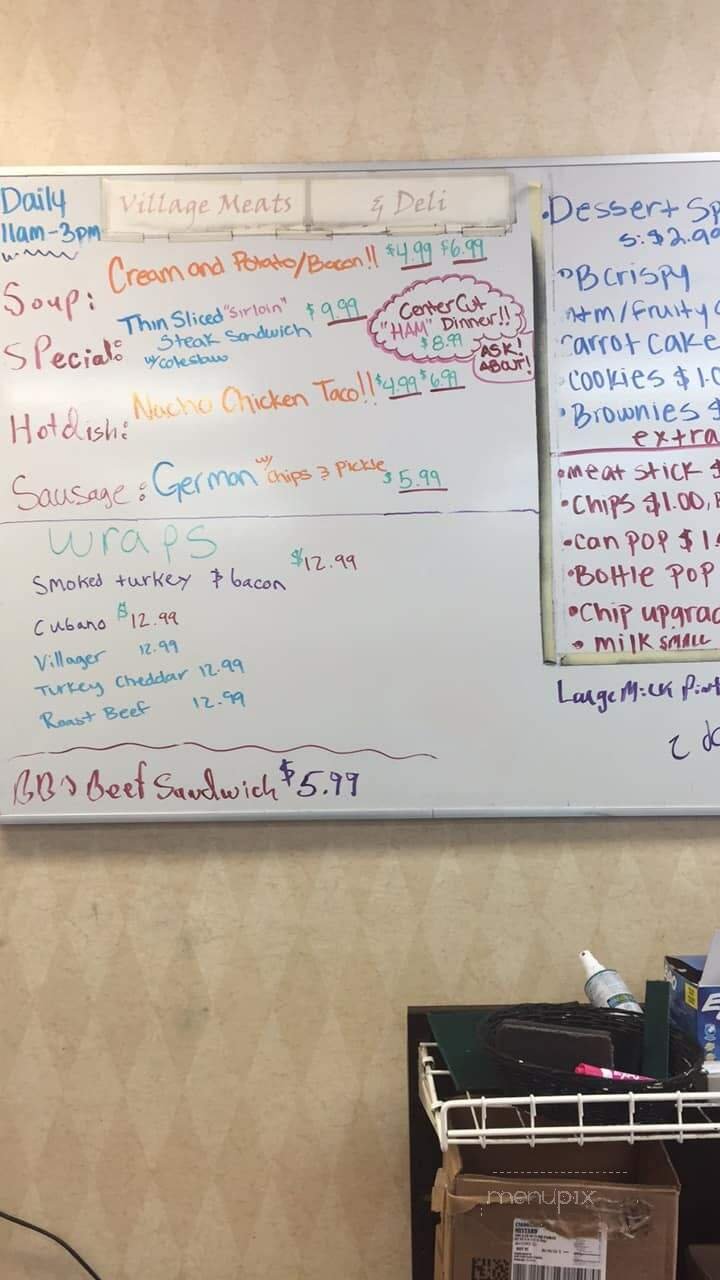 Daily
11am-3pm
Village Meats & Deli
Soup: Cream and Potato/Bacon!! $4.99 $6.99
Special: Thin Sliced "Sirloin" $9.99
Steak Sandwich
w/coleslaw
Center Cut
"HAM" Dinner!!
$8.99
ASK!
ABOUT!
Hotdish: Nacho Chicken Taco!! $4.99 $6.99
Sausage: German w/ chips & Pickle $5.99
Wraps
Smoked turkey & bacon $12.99
Cubano $12.99
Villager 12.99
Turkey Cheddar 12.99
Roast Beef 12.99
BBQ Beef Sandwich $5.99
•Dessert Sp
S: $2.99
•B crispy
/Fruity
Carrot Cake
•Cookies $1.0
•Brownies $
extra
•meat stick $
•Chips $1.00,
•can pop $1.
•Bottle pop
•Chip upgrad
•milk SMALL
Large Milk Pint
menupix